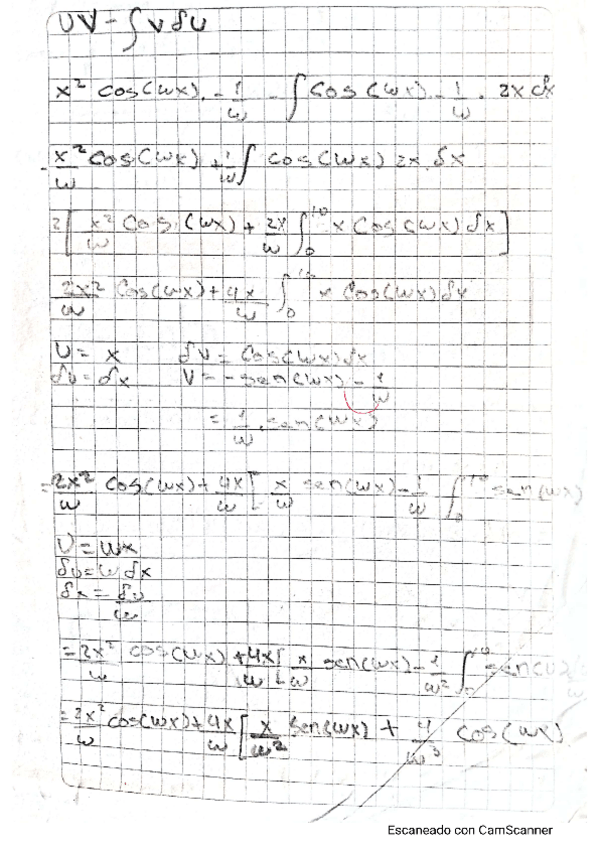 UV - ∫ V δU
x² cos(wx). -1/w - ∫ cos(wx). -1/w . 2x dx
- x²/w cos(wx) + 1/w ∫ cos(wx) 2x.δx
2[ x²/w cos(wx) + 2x/w ∫₀¹⁰ x cos(wx) δx ]
2x²/w cos(wx) + 4x/w ∫₀¹⁰ x cos(wx) δx
U = x δV = cos(wx) δx
δU = δx V = - sen(wx) - 1/w
= 1/w . sen(wx)
= 2x²/w cos(wx) + 4x/w [ x/w sen(wx) - 1/w ∫₀¹⁰ sen(wx)
U = wx
δU = w δx
δx = δU/w
= 2x²/w cos(wx) + 4x/w [ x/w sen(wx) - 1/w² ∫₀¹⁰
= 2x²/w cos(wx) + 4x/w [ x/w² sen(wx) + 4/w³ cos(wx)
Escaneado con CamScanner